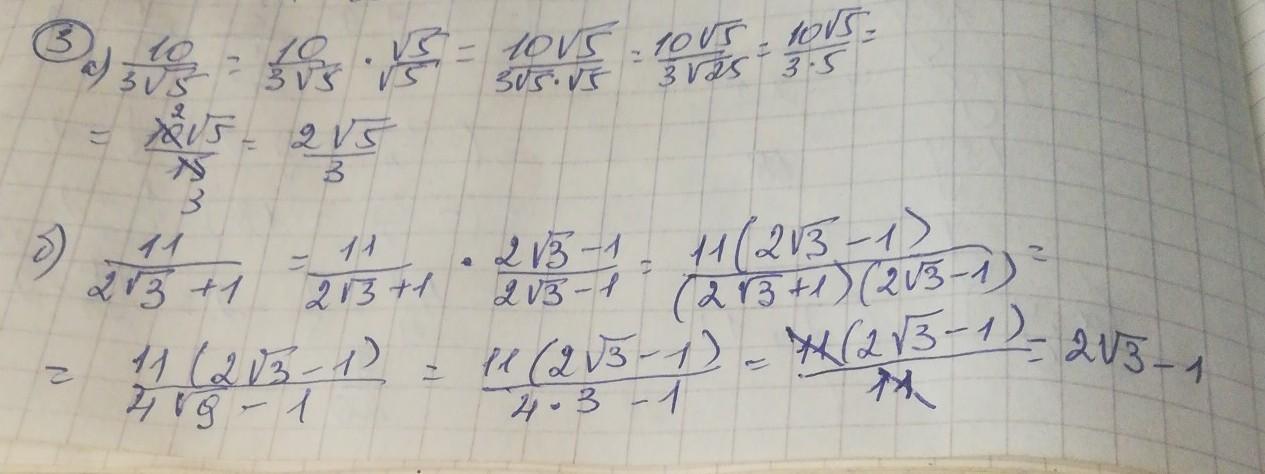 ③ а) 10/(3√5) = 10/(3√5) · √5/√5 = 10√5/(3√5·√5) = 10√5/(3√25) = 10√5/(3·5) =
= 10√5/15 2 3 = 2√5/3
б) 11/(2√3 + 1) = 11/(2√3 + 1) · (2√3 - 1)/(2√3 - 1) = 11(2√3 - 1)/((2√3 + 1)(2√3 - 1)) =
= 11(2√3 - 1)/(4√9 - 1) = 11(2√3 - 1)/(4·3 - 1) = 11(2√3 - 1)/11 = 2√3 - 1